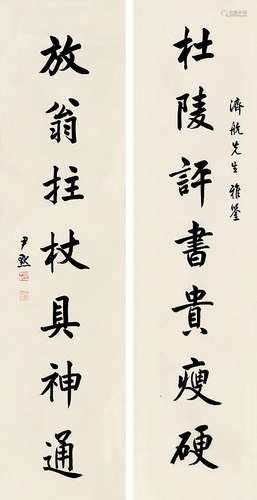 濟航先生雅鑒
杜陵評書貴瘦硬
放翁拄杖具神通
尹默